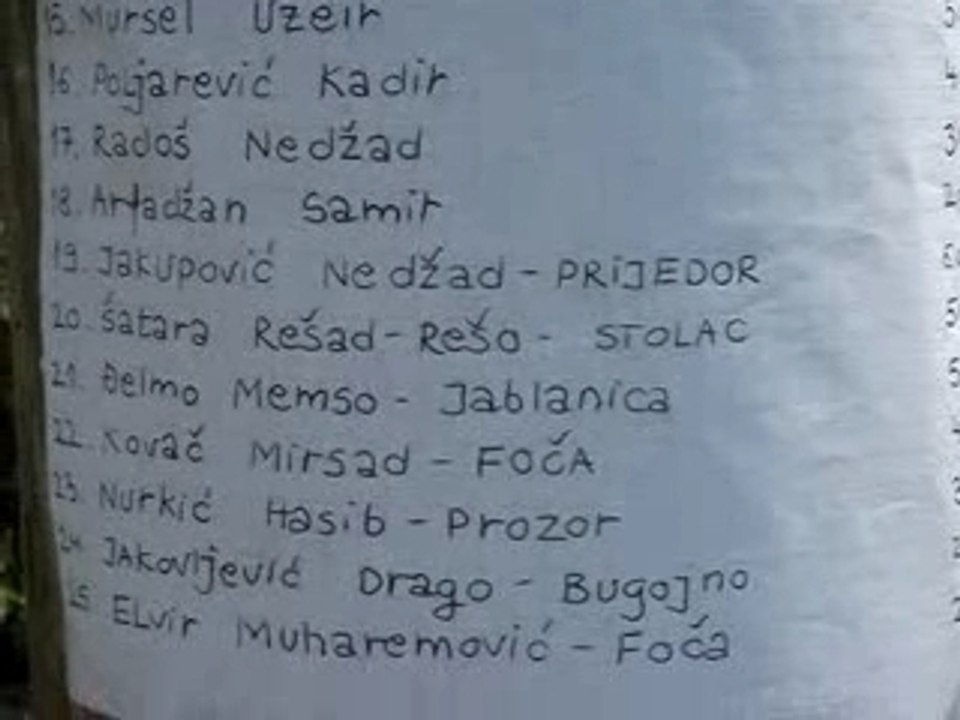 15. Mursel Uzeir
16. Poljarević Kadir
17. Radoš Nedžad
18. Arfadžan Samir
19. Jakupović Nedžad - PRIJEDOR
20. Šatara Rešad - Rešo - STOLAC
21. Đelmo Memso - Jablanica
22. Kovač Mirsad - FOČA
23. Nurkić Hasib - Prozor
24. JAKovljević Drago - Bugojno
25 ELvir Muharemović - Foča